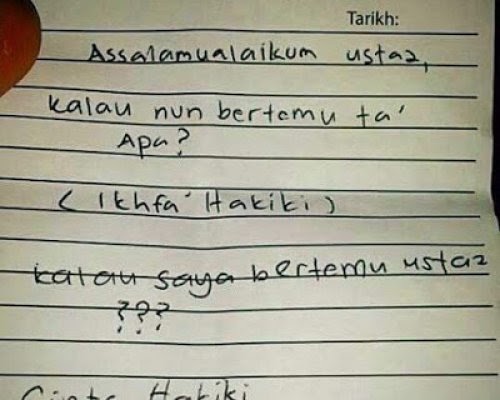 Tarikh:
Assalamualaikum ustaz,
kalau nun bertemu ta'
Apa?
(Ikhfa' Hakiki)
kalau saya bertemu ustaz
???
Cinta Hakiki